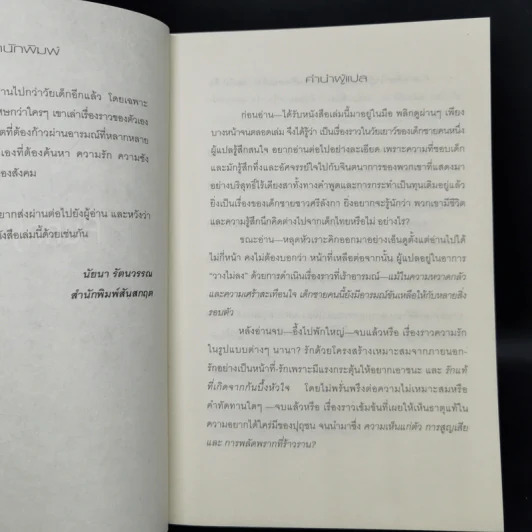 นักพิมพ์
านไปกว่าวัยเด็กอีกแล้ว โดยเฉพาะ
ศษกว่าใครๆ เขาเล่าเรื่องราวของตัวเอง
ตที่ต้องก้าวผ่านอารมณ์ที่หลากหลาย
เองที่ต้องค้นหา ความรัก ความชัง
องสังคม
ยากส่งผ่านต่อไปยังผู้อ่าน และหวังว่า
ังสือเล่มนี้ด้วยเช่นกัน
นัยนา รัตนวรรณ
สำนักพิมพ์สันสกฤต
คำนำผู้แปล
ก่อนอ่าน—ได้รับหนังสือเล่มนี้มาอยู่ในมือ พลิกดูผ่านๆ เพียง
บางหน้าจนตลอดเล่ม จึงได้รู้ว่า เป็นเรื่องราวในวัยเยาว์ของเด็กชายคนหนึ่ง
ผู้แปลรู้สึกสนใจ อยากอ่านต่อไปอย่างละเอียด เพราะความที่ชอบเด็ก
และมักรู้สึกทึ่งและอัศจรรย์ใจไปกับจินตนาการของพวกเขาที่แสดงมา
อย่างบริสุทธิ์ไร้เดียงสาทั้งทางคำพูดและการกระทำเป็นทุนเดิมอยู่แล้ว
ยิ่งเป็นเรื่องของเด็กชายชาวศรีลังกา ยิ่งอยากจะรู้นักว่า พวกเขามีชีวิต
และความรู้สึกนึกคิดต่างไปจากเด็กไทยหรือไม่ อย่างไร?
ขณะอ่าน—หลุดหัวเราะคิกออกมาอย่างเอ็นดูตั้งแต่อ่านไปได้
ไม่กี่หน้า คงไม่ต้องบอกว่า หน้าที่เหลือต่อจากนั้น ผู้แปลอยู่ในอาการ
“วางไม่ลง” ด้วยการดำเนินเรื่องราวที่เร้าอารมณ์—แม้ในความหวาดกลัว
และความเศร้าสะเทือนใจ เด็กชายคนนี้ยังมีอารมณ์ขันเหลือให้กับหลายสิ่ง
รอบตัว
หลังอ่านจบ—อึ้งไปพักใหญ่—จบแล้วหรือ เรื่องราวความรัก
ในรูปแบบต่างๆ นานา? รักด้วยโครงสร้างเหมาะสมจากภายนอก-
รักอย่างเป็นหน้าที่-รักเพราะมีแรงกระตุ้นให้อยากเอาชนะ และ รักแท้
ที่เกิดจากก้นบึ้งหัวใจ โดยไม่พรั่นพรึงต่อความไม่เหมาะสมหรือ
คำทัดทานใดๆ —จบแล้วหรือ เรื่องราวเข้มข้นที่เผยให้เห็นธาตุแท้ใน
ความอยากได้ใคร่มีของปุถุชน จนนำมาซึ่ง ความเห็นแก่ตัว การสูญเสีย
และ การพลัดพรากที่ร้าวราน?